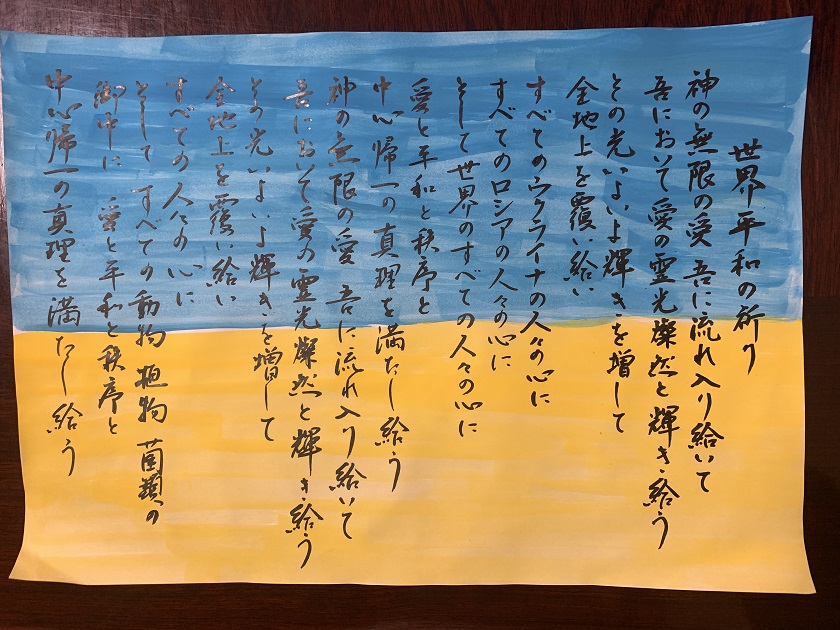 世界平和の祈り
神の無限の愛 吾に流れ入り給いて
吾において愛の霊光燦然と輝き給う
その光いよいよ輝きを増して
全地上を覆い給い
すべてのウクライナの人々の心に
すべてのロシアの人々の心に
そして世界のすべての人々の心に
愛と平和と秩序と
中心帰一の真理を満たし給う
神の無限の愛 吾に流れ入り給いて
吾において愛の霊光燦然と輝き給う
その光いよいよ輝きを増して
全地上を覆い給い
すべての人々の心に
そして すべての動物 植物 菌類の
御中に 愛と平和と秩序と
中心帰一の真理を満たし給う